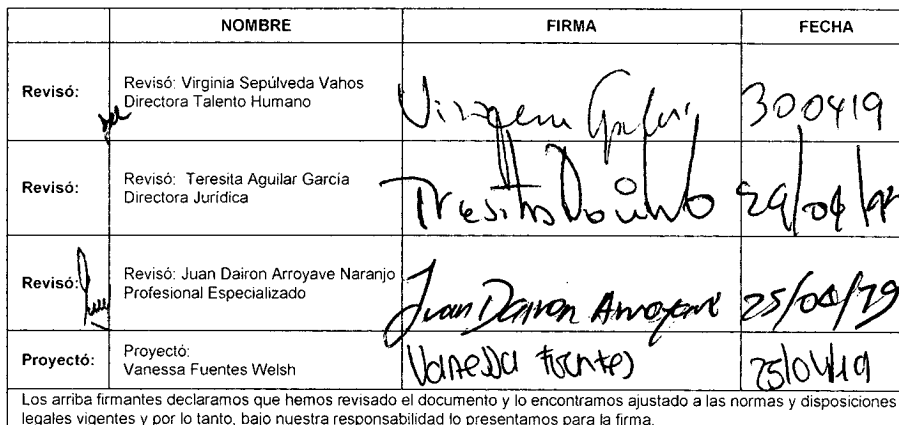 NOMBRE FIRMA FECHA
Revisó: Revisó: Virginia Sepúlveda Vahos
Directora Talento Humano
300419
Revisó: Revisó: Teresita Aguilar García
Directora Jurídica
29/04/
Revisó: Revisó: Juan Dairon Arroyave Naranjo
Profesional Especializado
Juan Dairon Arroyave 25/04/19
Proyectó: Proyectó:
Vanessa Fuentes Welsh
Vanessa Fuentes 25/04/19
Los arriba firmantes declaramos que hemos revisado el documento y lo encontramos ajustado a las normas y disposiciones
legales vigentes y por lo tanto, bajo nuestra responsabilidad lo presentamos para la firma.